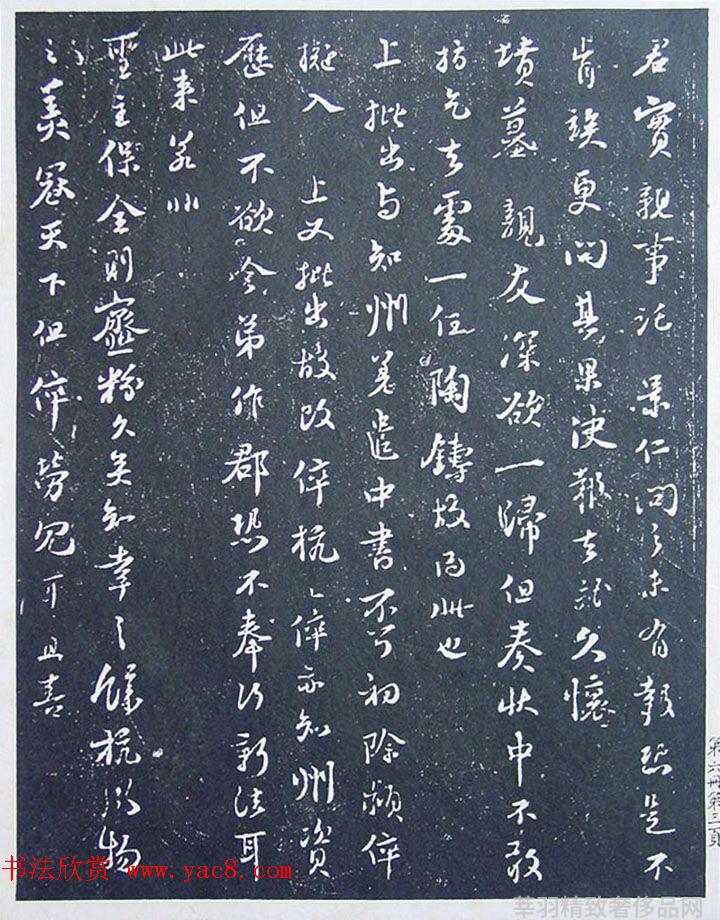 君實親事託　景仁問之未有報恐是不
肯誒更問其果決報去記久懷
墳墓　親友深欲一歸但奏狀中不敢
指乞去處一任陶鑄故為此也
上批出与知州差遣中書不可初除潁倅
擬入　上又批出故改倅杭〻倅亦知州資
歷但不欲令弟作郡恐不奉行新法耳
此來若非
聖主保全則齏粉久矣知幸〻餘杭風物
之美冠天下但倅勞冗耳且喜
第六冊第三頁
书法欣赏 www.yac8.com
華羽精致奢侈品网